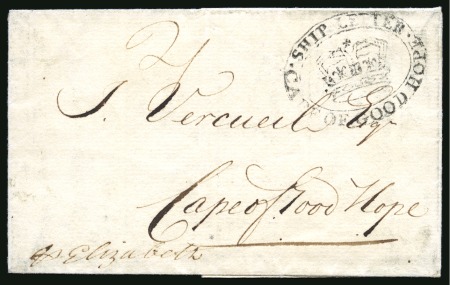 SHIP LETTER
CAPE OF GOOD HOPE
J. Vercueil Esqr
Cape of Good Hope
Elizabeth